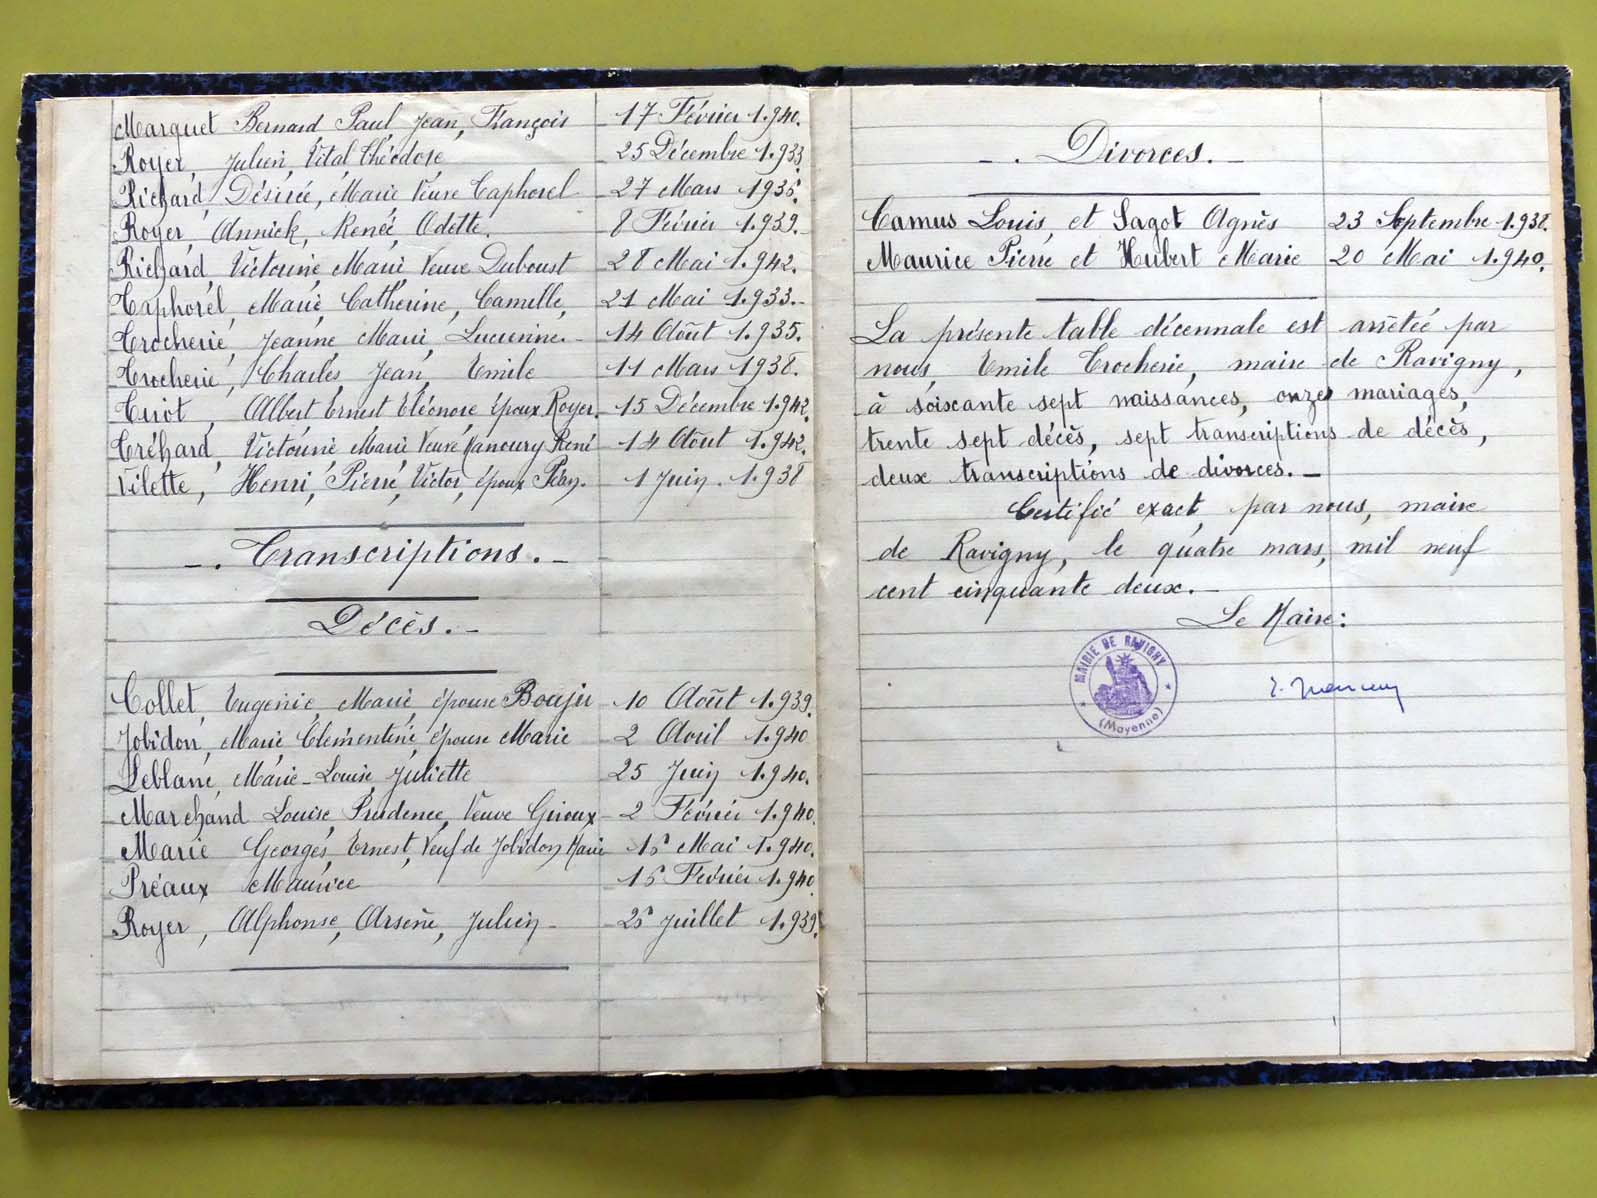 Marquet Bernard Paul, Jean, François 17 Février 1.940.
Royer, Julien, Vital Théodose 25 Décembre 1.933.
Richard, Désirée, Marie Veuve Taphorel 27 Mars 1936.
Royer, Annick, Renée, Odette. 8 Février 1.939.
Richard, Victorine Marie Veuve Duboust 28 Mai 1.942.
Taphorel, Marie, Catherine, Camille, 21 Mai 1.933.
Trocherie, Jeanne Marie Lucienne. 14 Août 1.935.
Trocherie, Charles, Jean, Emile 11 Mars 1938.
Turiot, Albert Ernest Eléonore époux Royer. 15 Décembre 1.942.
Tréhard, Victorine Marie Veuve Vanoury René 14 Août 1.942.
Vilette, Henri, Pierre, Victor, époux Péan. 1 Juin. 1.938
-. Transcriptions. -
Décès. -
Collet, Eugénie, Marie épouse Bouju 10 Août 1.939.
Jobidon, Marie Clémentine épouse Marie 2 Avril 1.940
Leblanc, Marie-Louise, Juliette 25 Juin 1.940.
Marchand Louise Prudence, Veuve Giroux 2 Février 1.940.
Marie Georges, Ernest, Veuf de Jobidon Marie 16 Mai 1.940.
Préaux Maurice 16 Février 1.940.
Royer, Alphonse, Arsène, Julien 26 Juillet 1.939.
-. Divorces. -
Camus Louis, et Sagot Agnès 23 Septembre 1.938.
Maurice Pierre et Hubert Marie 20 Mai 1.940.
La présente table décennale est arrêtée par
nous, Emile Trocherie, maire de Ravigny,
à soixante sept naissances, onze mariages,
trente sept décès, sept transcriptions de décès,
deux transcriptions de divorces. -
Certifié exact, par nous, maire
de Ravigny, le quatre mars, mil neuf
cent cinquante deux. -
Le Maire:
MAIRIE DE RAVIGNY
(Mayenne)